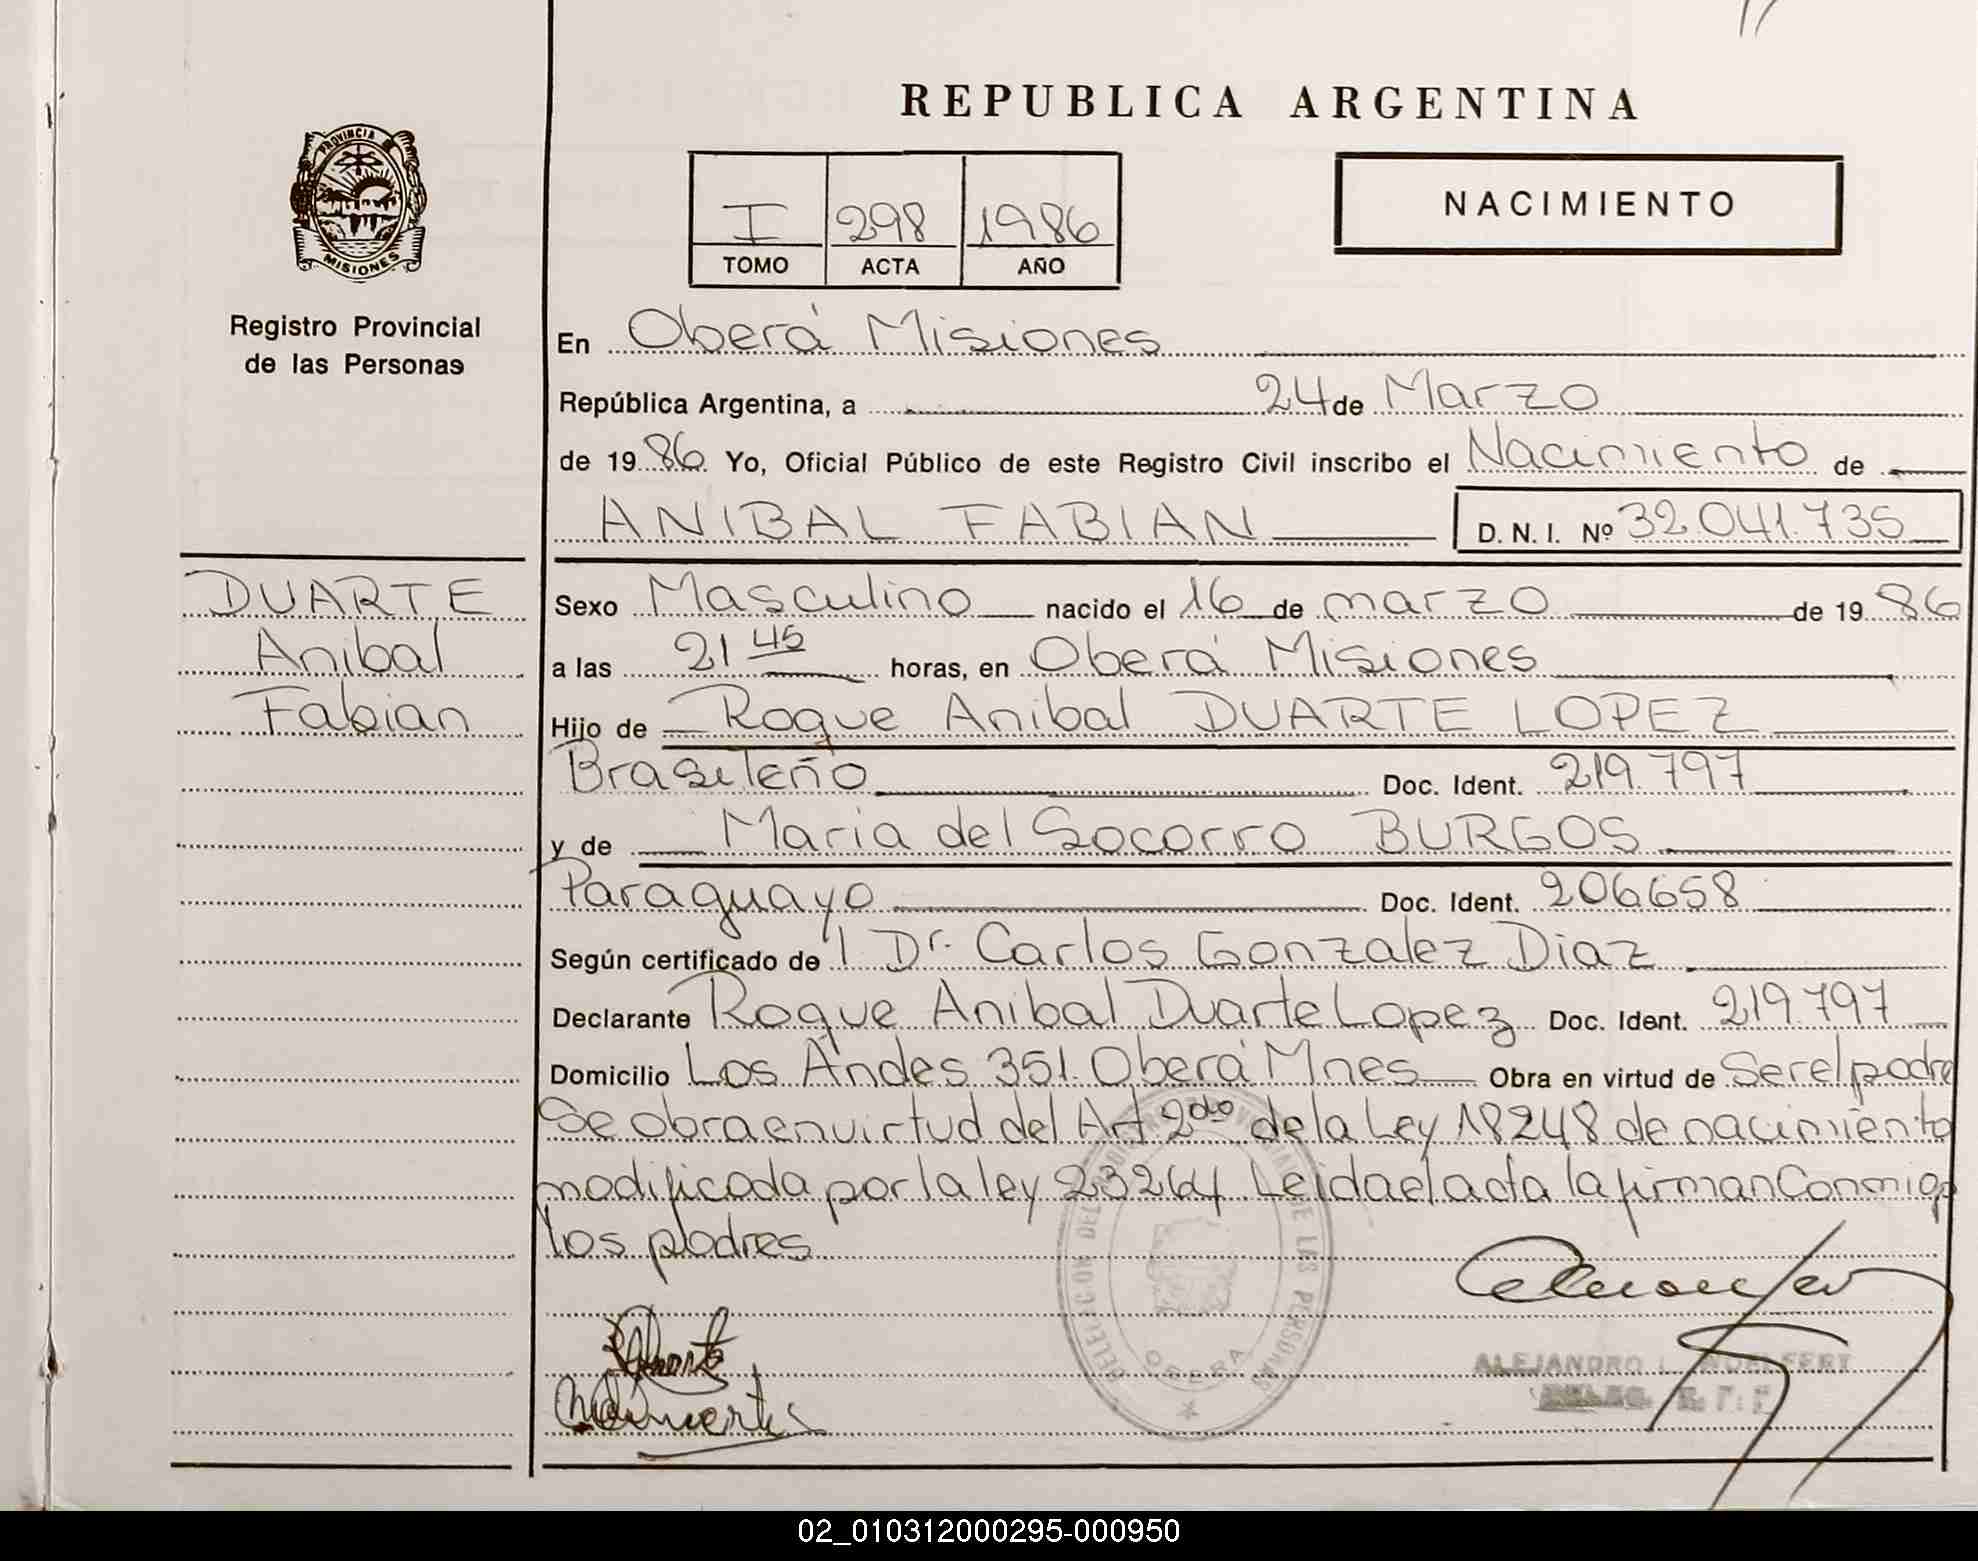 REPUBLICA ARGENTINA
PROVINCIA
MISIONES
Registro Provincial
de las Personas
I 298 1986
TOMO ACTA AÑO
NACIMIENTO
En Oberá Misiones
República Argentina, a 24 de Marzo
de 1986. Yo, Oficial Público de este Registro Civil inscribo el Nacimiento de
ANIBAL FABIAN D. N. I. Nº 32.041.735
DUARTE
Anibal
Fabian
Sexo Masculino nacido el 16 de marzo de 1986
a las 21 45 horas, en Oberá Misiones
Hijo de Roque Anibal DUARTE LOPEZ
Brasileño Doc. Ident. 219.797
y de Maria del Socorro BURGOS
Paraguayo Doc. Ident. 206658
Según certificado de l Dr. Carlos Gonzalez Diaz
Declarante Roque Anibal Duarte Lopez Doc. Ident. 219.797
Domicilio Los Andes 351. Oberá Mnes Obra en virtud de Ser el padre
Se obra en virtud del Art 2do de la Ley 18248 de nacimiento
modificada por la ley 23264 Leida el acta la firman Conmigo
los padres
OBERA
ALEJANDRO L.
02_010312000295-000950